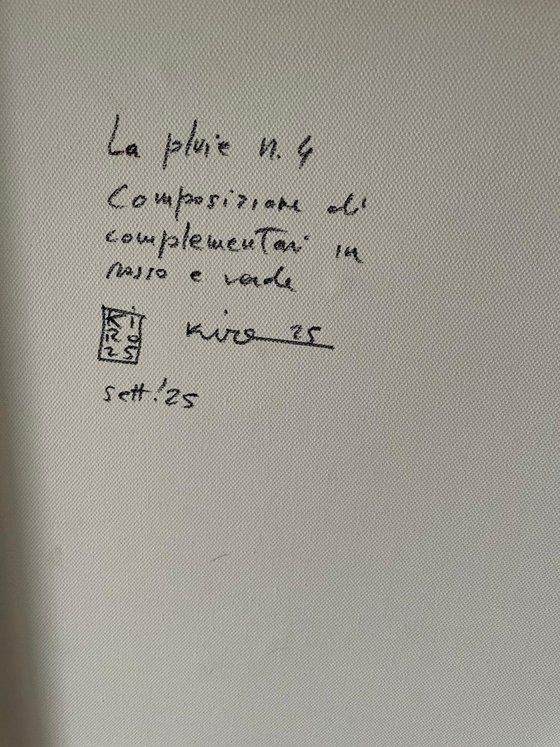 La pluie n. 4
Composizione di
complementari in
rosso e verde
KI
RO
25
Kiro 25
sett. '25